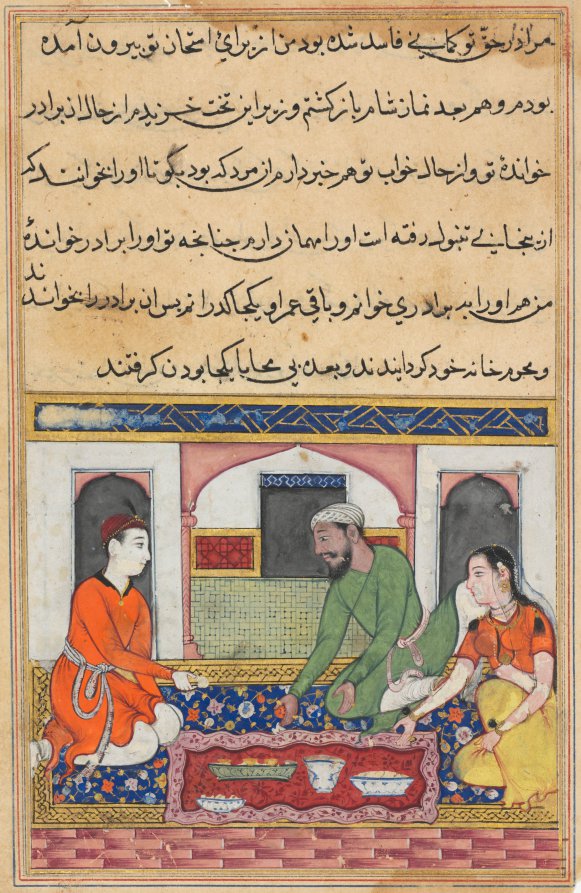 مرا در حق تو کمانی فاسد شده بود من از برای امتحان تو بیرون آمده
بودم و هم بعد نماز شام باز کشتم و زیر این تخت خزیدم از حال ان برادر
خواندهٔ تو و از حال خواب تو هم خبر دارم ان مرد که بود بکو تا او را بخوانند که
از بیجا نی رفته است او را مهمان دارم جنانجه تو او را برادر خواندهٔ
من هم او را به برادری خوانم و باقی عمر او یکجا کذرانم بس ان برادر را بخواندند
و محرم خانه خود کردانیدند و بعده بی محابا یکجا بودن کرفتند